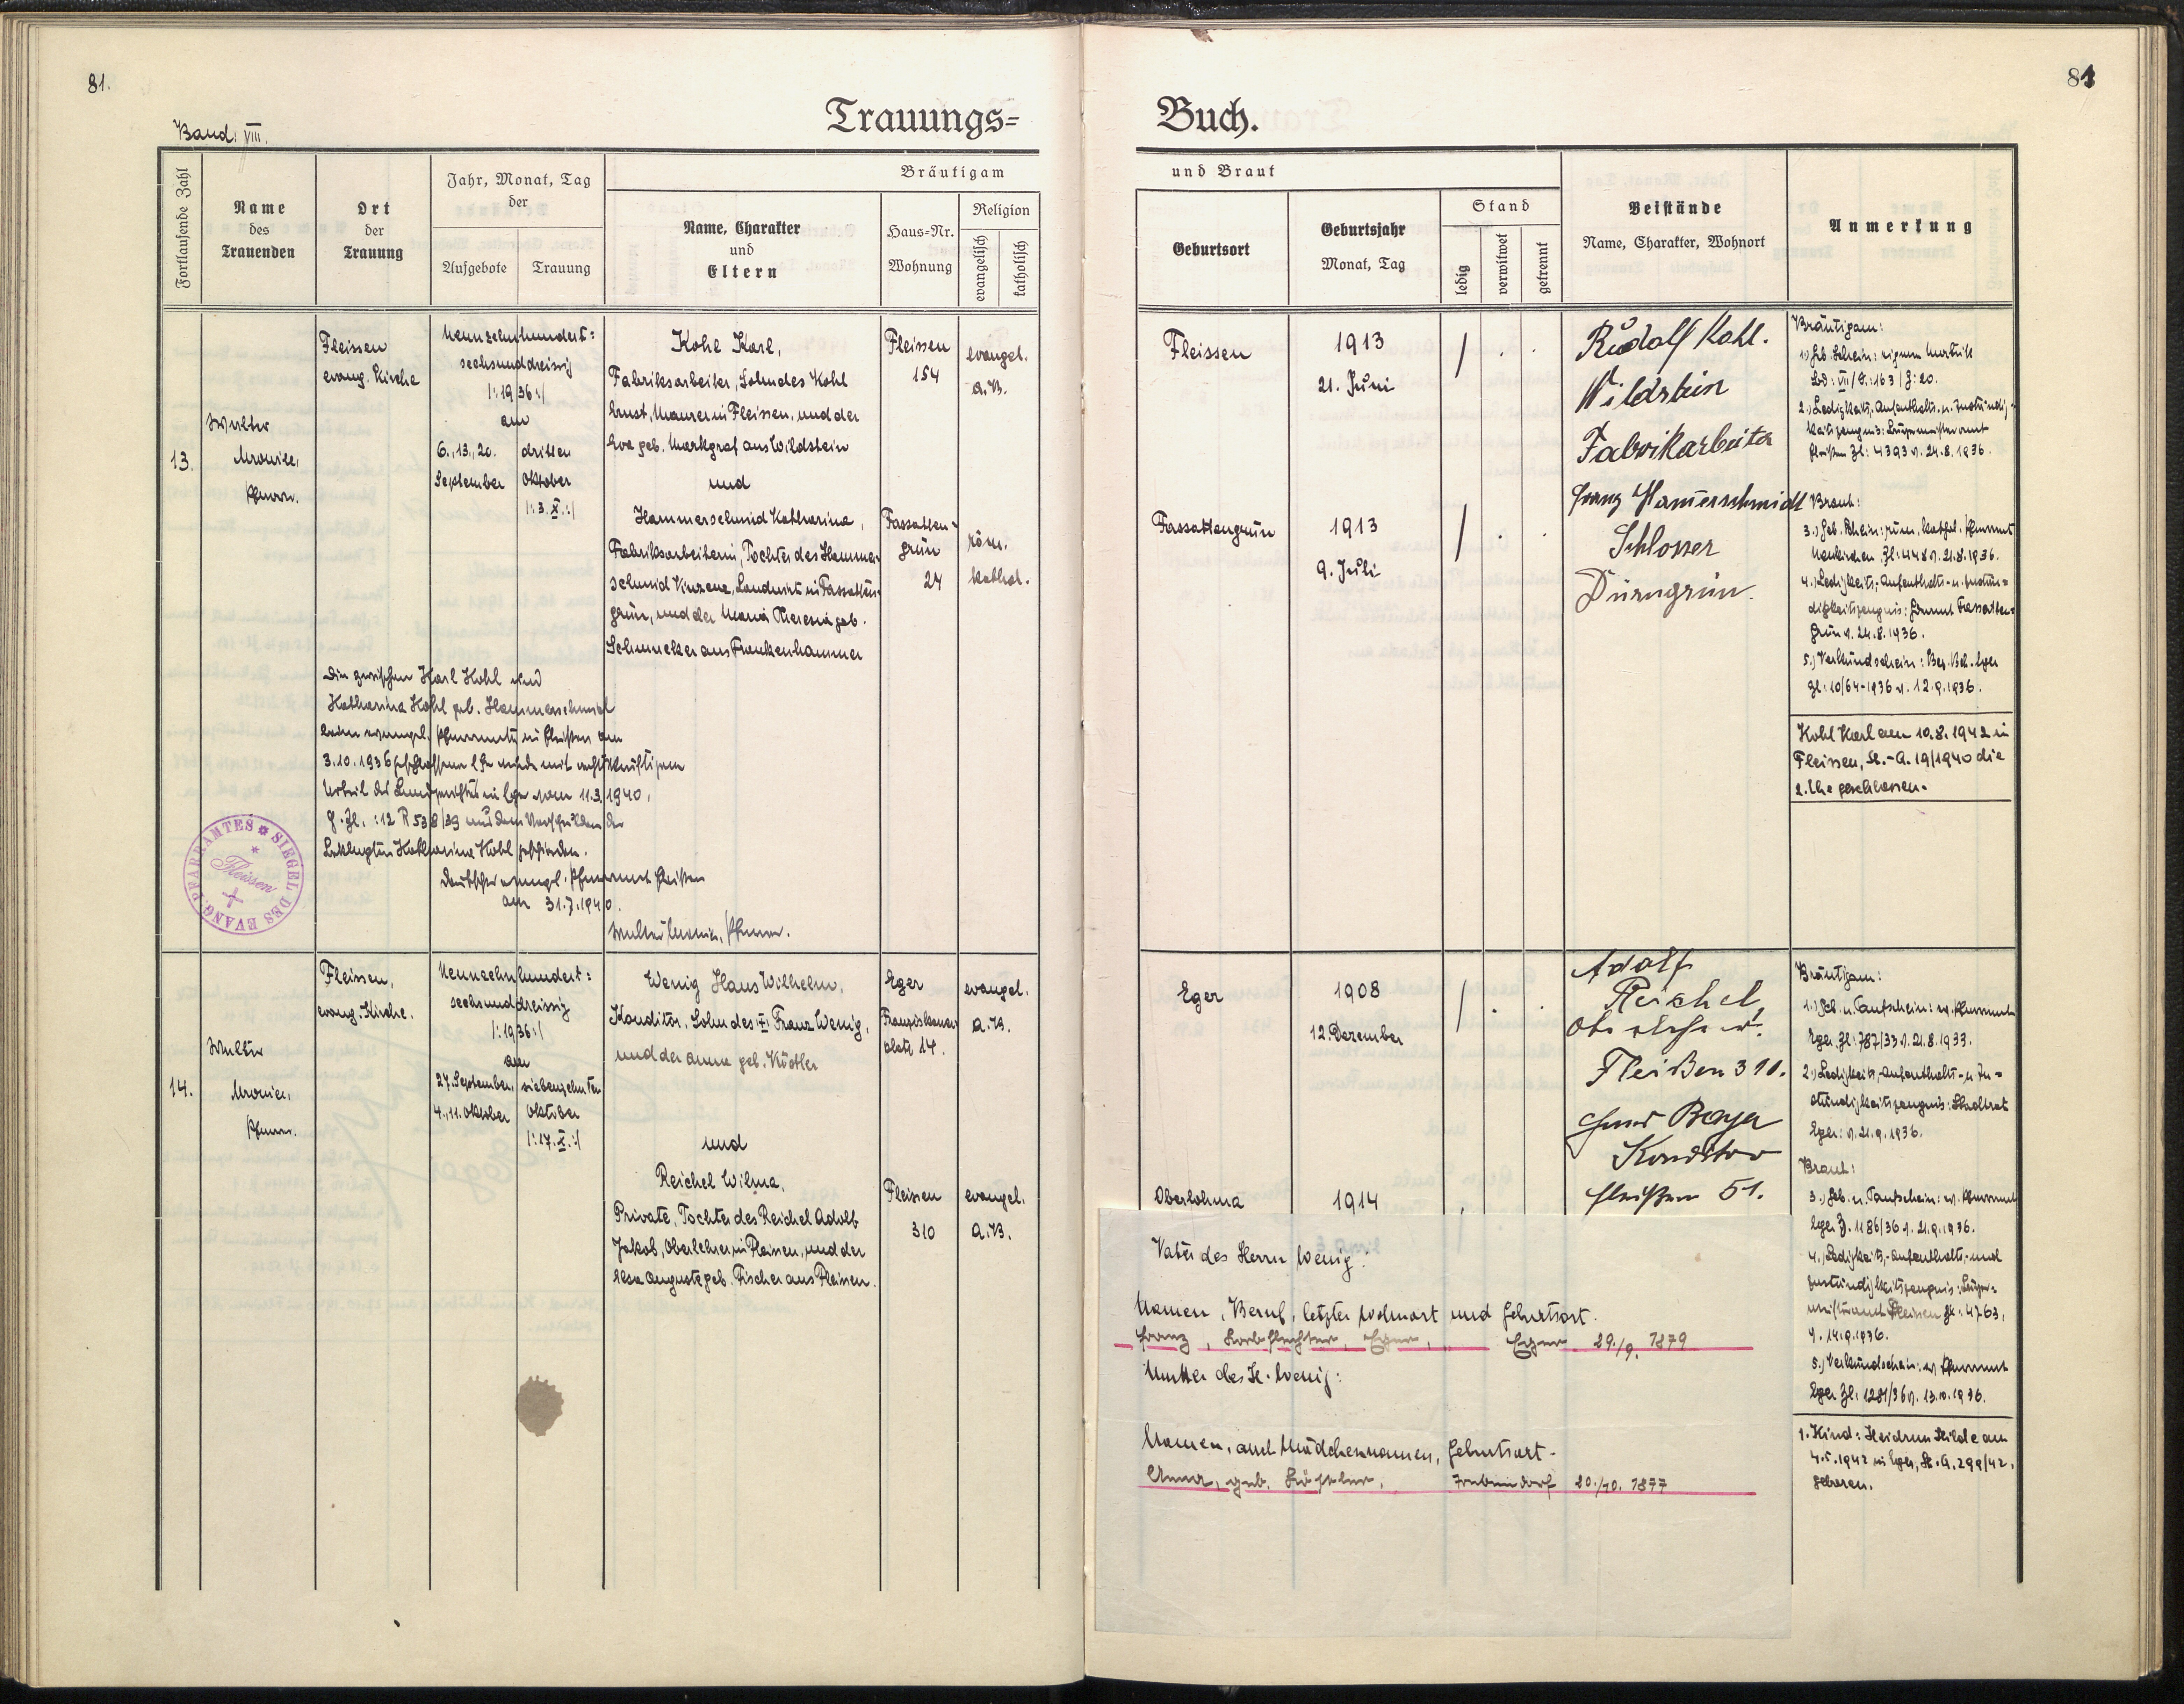 81.
Band. VIII.
Trauungs=
Fortlaufende Zahl
Name
des
Trauenden
Ort
der
Trauung
Jahr, Monat, Tag
der
Aufgebote
Trauung
Bräutigam
Name, Charakter
und
Eltern
Haus=Nr.
Wohnung
Religion
evangelisch
katholisch
13.
Walter
Pfarrer.
Fleissen
evang. Kirche
Neunzehnhundert=
sechsunddreissig
|:1936:|
am
6., 13., 20.
September
dritten
Oktober
|:3.X.:|
Kohl Karl,
Fabriksarbeiter, Sohn des Kohl
Ernst, Maurer in Fleissen, und der
Eva geb. Markgraf aus Wildstein
und
Hammerschmid Katharina,
Fabriksarbeiterin, Tochter des Hammer=
schmid Vinzenz, Landwirt in Fassatten=
grün, und der Maria Theresia geb.
Schmucker aus Frankenhammer
Fleissen
154
Fassatten=
grün
24
evangel.
A.B.
röm.
kathol.
Die zwischen Karl Kohl und
Katharina Kohl geb. Hammerschmid
beim evangel. Pfarramte in Fleißen am
3.10.1936 geschlossene Ehe wurde mit rechtskräftigem
Urteil des Landgerichtes in Eger vom 11.3.1940,
G.Zl.: 12 R 538/39 aus dem Verschulden der
Beklagten Katharina Kohl geschieden.
Deutsches evangel. Pfarramt Fleißen
am 31.7.1940.
Pfarrer.
SIEGEL DES EVANG. PFARRAMTES
Fleissen
14.
Walter
Pfarrer.
Fleissen,
evang. Kirche.
Neunzehnhundert=
sechsunddreissig
|:1936:|
am
27. September,
4., 11. Oktober
siebenzehnten
Oktober
|:17.X.:|
Wenig Hans Wilhelm,
Konditor, Sohn des Franz Wenig,
und der Anna geb. Köstler
und
Reichel Wilma,
Private, Tochter des Reichel Adolf
Jakob, Oberlehrer in Fleissen, und der
Elsa Auguste geb. Fischer aus Fleissen.
Eger
Franziskaner
platz 14.
Fleissen
310
evangel.
A.B.
evangel.
A.B.
81
Buch.
und Braut
Geburtsort
Geburtsjahr
Monat, Tag
Stand
ledig
verwitwet
getrennt
Beistände
Name, Charakter, Wohnort
Anmerkung
Fleissen
1913
21. Juni
Rudolf Kohl.
Wildstein
Fabrikarbeiter
Fassattengrün
1913
9. Juli
Franz Hamerschmidt
Schlosser
Dürngrün.
Bräutigam:
1.) Geb. Schein: eigene Matrik
Bd: VII/S.: 163/Z: 20.
2.) Ledigkeits-, Aufenthalts- u. Zuständig=
keitszeugnis: Bürgermeisteramt
Fleißen Zl: 4393 v. 24.8.1936.
Braut:
3.) Geb. Schein: röm. kathol. Pfarramt
Neukirchen Zl: 448 v. 21.8.1936.
4.) Ledigkeits-, Aufenthalts- u. Zustän=
digkeitszeugnis: Gdeamt Fassatten=
grün v. 24.8.1936.
5.) Verkündschein: Bez. Beh. Eger
Zl: 10/64-1936 v. 12.9.1936.
Kohl Karl am 10.8.1942 in
Fleissen, St.-A. 19/1940 die
2. Ehe geschlossen.
Eger
1908
12. Dezember
Adolf
Reichel,
Oberlehrer
Fleißen 310.
Beyer
Konditor
Fleißen 51.
Oberlohma
1914
Bräutigam:
1.) Geb. u. Taufschein: ev. Pfarramt
Eger Zl: 787/33 v. 21.8.1933.
2.) Ledigkeits-, Aufenthalts- u. Zu=
ständigkeitszeugnis: Stadtrat
Eger: v. 21.9.1936.
Braut:
3.) Geb. u. Taufschein: ev. Pfarramt
Eger Z. 1186/36 v. 21.9.1936.
4.) Ledigkeits-, Aufenthalts- und
Zuständigkeitszeugnis: Bürger=
meisteramt Fleissen Zl: 4763,
v. 14.9.1936.
5.) Verkündschein: ev. Pfarramt
Eger Zl. 1281/36 v. 13.10.1936.
1. Kind: Heidrun Hilde am
4.5.1942 in Eger, St.A. 299/42.
geboren.
Vater des Herrn Wenig:
Namen, Beruf, letzter Wohnort und Geburtsort.
Franz, Korbflechter, Eger, Eger 29./9. 1879
Mutter des H. Wenig:
Namen, auch Mädchennamen, Geburtsort -
Anna, geb. Köstler, 20./10. 1877